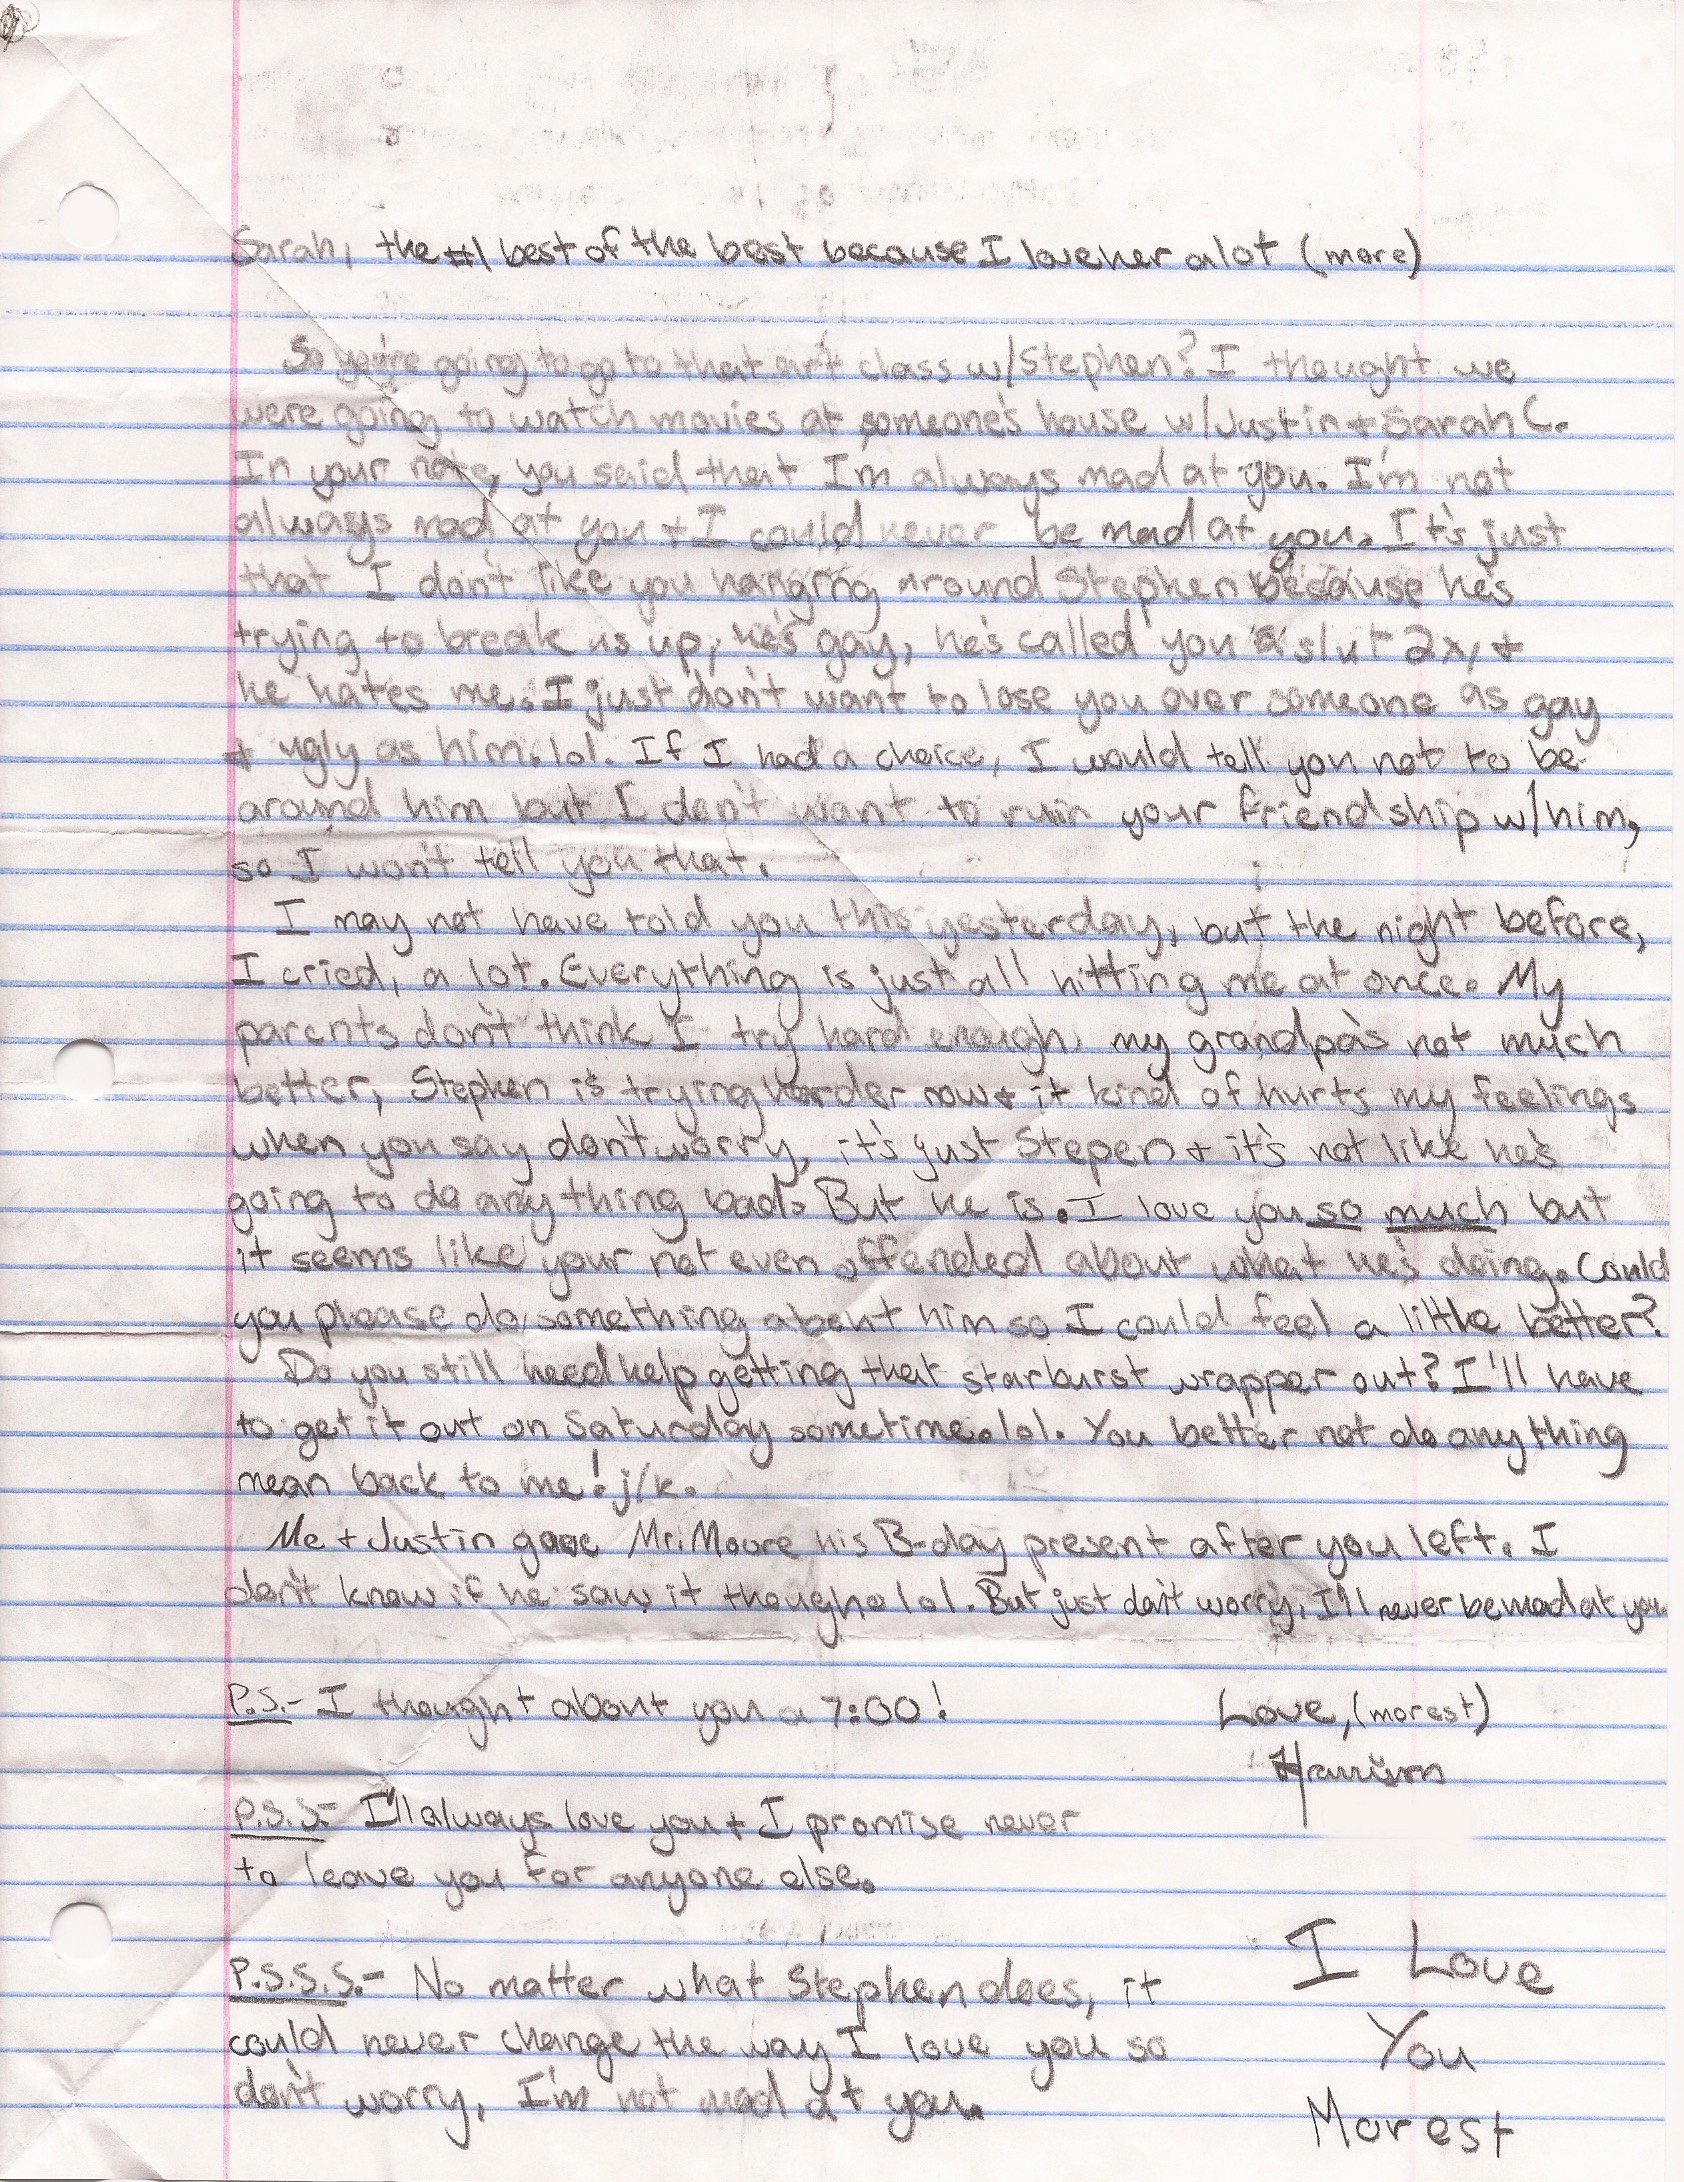 Sarah, the #1 best of the best because I love her a lot (more)
So you're going to go to that art class w/Stephen? I thought we
were going to watch movies at someone's house w/Justin + Sarah C.
In your note, you said that I'm always mad at you. I'm not
always mad at you + I could never be mad at you. It's just
that I don't like you hanging around Stephen because he's
trying to break us up, he's gay, he's called you a slut 2x, +
he hates me. I just don't want to lose you over someone as gay
+ ugly as him. lol. If I had a choice, I would tell you not to be
around him but I don't want to ruin your friendship w/him,
so I won't tell you that.
I may not have told you this yesterday, but the night before,
I cried, a lot. Everything is just all hitting me at once. My
parents don't think I try hard enough, my grandpa's not much
better, Stephen is trying harder now + it kind of hurts my feelings
when you say don't worry, it's just Stepen + it's not like he's
going to do anything bad. But he is. I love you so much but
it seems like your not even offended about what he's doing. Could
you please do something about him so I could feel a little better?
Do you still need help getting that starburst wrapper out? I'll have
to get it out on Saturday sometime. lol. You better not do anything
mean back to me! j/k.
Me + Justin gave Mr. Moore his B-day present after you left. I
don't know if he saw it though. lol. But just don't worry, I'll never be mad at you.
P.S.- I thought about you a 7:00!
Love, (morest)
Harrison
P.S.S.- I'll always love you + I promise never
to leave you for anyone else.
P.S.S.S.- No matter what Stephen does, it
could never change the way I love you so
don't worry, I'm not mad at you.
I Love
You
Morest